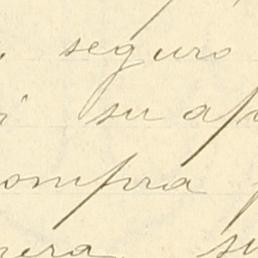 seguro
su ap
ompra
rera su